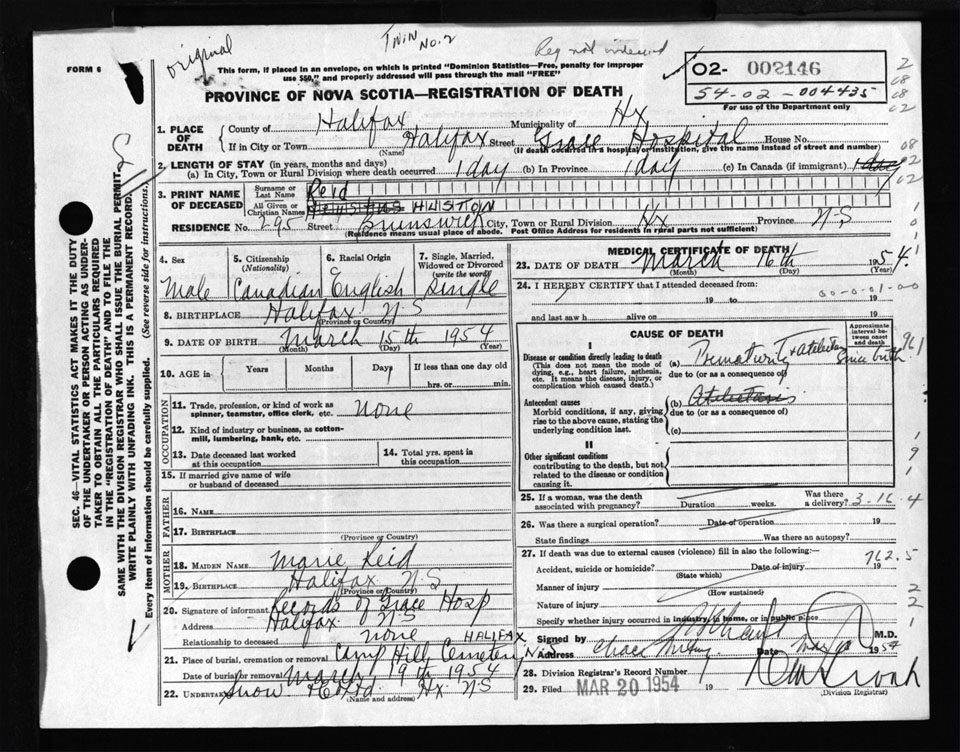 original
TWIN NO. 2
Reg not indexed
FORM 6
This form, if placed in an envelope, on which is printed "Dominion Statistics—Free, penalty for improper use $50," and properly addressed will pass through the mail "FREE"
02- 002146
54-02-004435
For use of the Department only
PROVINCE OF NOVA SCOTIA—REGISTRATION OF DEATH
1. PLACE OF DEATH { County of Halifax Municipality of Hx
If in City or Town Halifax Street Grace Hospital House No.
(Name) (If death occurred in a hospital or institution, give the name instead of street and number)
2. LENGTH OF STAY (in years, months and days)
(a) In City, Town or Rural Division where death occurred 1 day (b) In Province 1 day (c) In Canada (if immigrant) 1 day
3. PRINT NAME OF DECEASED { Surname or Last Name Reid
All Given or Christian Names HUSTON
RESIDENCE No. 295 Street Brunswick City, Town or Rural Division Hx Province N-S
(Residence means usual place of abode. Post Office Address for residents in rural parts not sufficient)
4. Sex
5. Citizenship (Nationality)
6. Racial Origin
7. Single, Married, Widowed or Divorced (write the word)
Male Canadian English Single
8. BIRTHPLACE Halifax N-S
(Province or Country)
9. DATE OF BIRTH March 15th 1954
(Month) (Day) (Year)
10. AGE in { Years Months Days If less than one day old
hrs. or min.
OCCUPATION
11. Trade, profession, or kind of work as spinner, teamster, office clerk, etc. none
12. Kind of industry or business, as cotton-mill, lumbering, bank, etc.
13. Date deceased last worked at this occupation
14. Total yrs. spent in this occupation
15. If married give name of wife or husband of deceased
FATHER
16. NAME
17. BIRTHPLACE
(Province or Country)
MOTHER
18. MAIDEN NAME Marie Reid
19. BIRTHPLACE Halifax N-S
(Province or Country)
20. Signature of informant Records of Grace Hosp
Address Halifax NS
Relationship to deceased none
21. Place of burial, cremation or removal Camp Hill Cemetery HALIFAX N.S.
Date of burial or removal March 19th 1954
22. UNDERTAKER Snow & Co Ltd Hx NS
(Name and address)
MEDICAL CERTIFICATE OF DEATH
23. DATE OF DEATH March 16th 1954
(Month) (Day) (Year)
24. I HEREBY CERTIFY that I attended deceased from:
19 to 19
00-0-01-00
and last saw h alive on 19
CAUSE OF DEATH
Approximate interval between onset and death
I
Disease or condition directly leading to death
(This does not mean the mode of dying, e.g., heart failure, asthenia, etc. It means the disease, injury, or complication which caused death.)
(a) Prematurity + atelectasis since birth
due to (or as a consequence of)
Antecedent causes
Morbid conditions, if any, giving rise to the above cause, stating the underlying condition last.
(b) Atelectasis
due to (or as a consequence of)
(c)
II
Other significant conditions
contributing to the death, but not related to the disease or condition causing it.
25. If a woman, was the death associated with pregnancy? Duration weeks. Was there a delivery? 3-16-4
26. Was there a surgical operation? Date of operation 19
State findings Was there an autopsy?
27. If death was due to external causes (violence) fill in also the following:—
Accident, suicide or homicide? Date of injury 19
(State which)
762.5
Manner of injury
(How sustained)
Nature of injury
Specify whether injury occurred in industry, in home, or in public place
Signed by M.D.
Address Date 1954
28. Division Registrar's Record Number
29. Filed MAR 20 1954
(Division Registrar)
SEC. 46—VITAL STATISTICS ACT, MAKES IT THE DUTY OF THE UNDERTAKER OR PERSON ACTING AS UNDERTAKER TO OBTAIN ALL THE PARTICULARS REQUIRED IN THE "REGISTRATION OF DEATH" AND TO FILE THE SAME WITH THE DIVISION REGISTRAR WHO SHALL ISSUE THE BURIAL PERMIT.
WRITE PLAINLY WITH UNFADING INK. THIS IS A PERMANENT RECORD.
Every item of information should be carefully supplied. (See reverse side for instructions.)